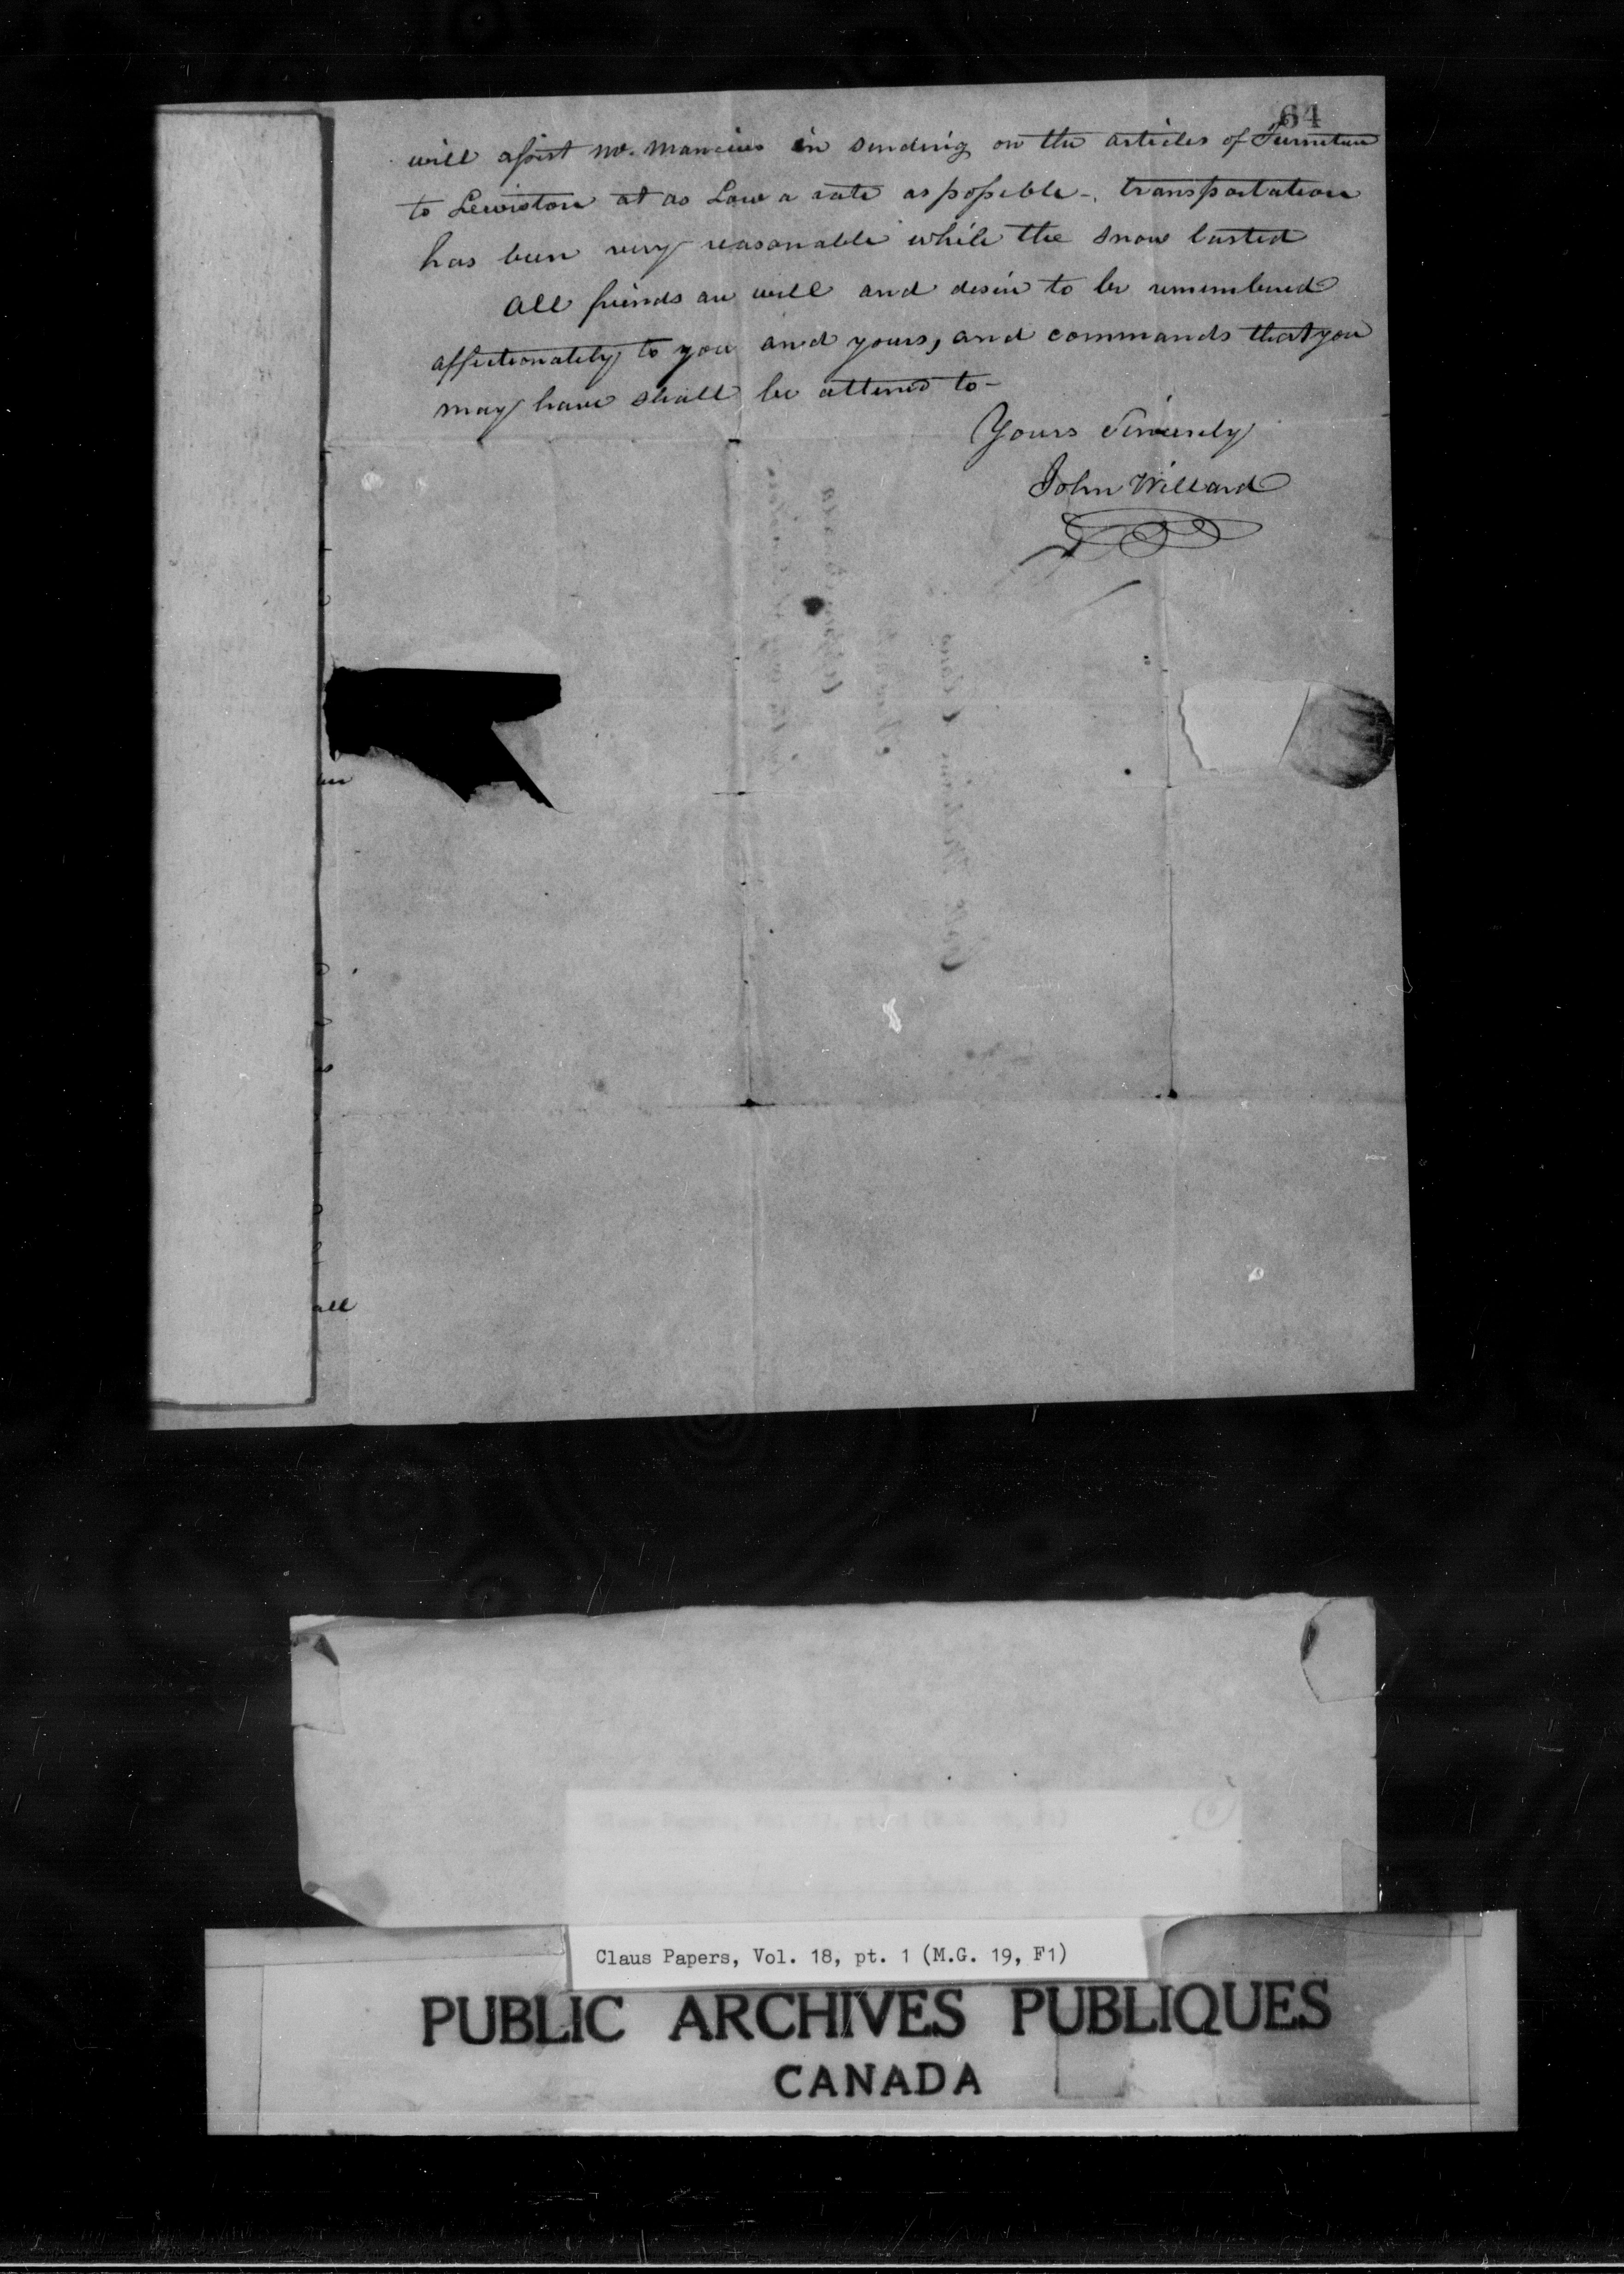 64
will assist Mr. Mancius in sending on the articles of Furniture
to Lewiston at as Low a rate as possible -. transportation
has been very reasonable while the snow lasted
All friends are well and desire to be remembered
affectionately to you and yours, and commands that you
may have shall be attend to -
Yours Sincerely
John Willard
all
Claus Papers, Vol. 18, pt. 1 (M.G. 19, F1)
PUBLIC ARCHIVES PUBLIQUES
CANADA